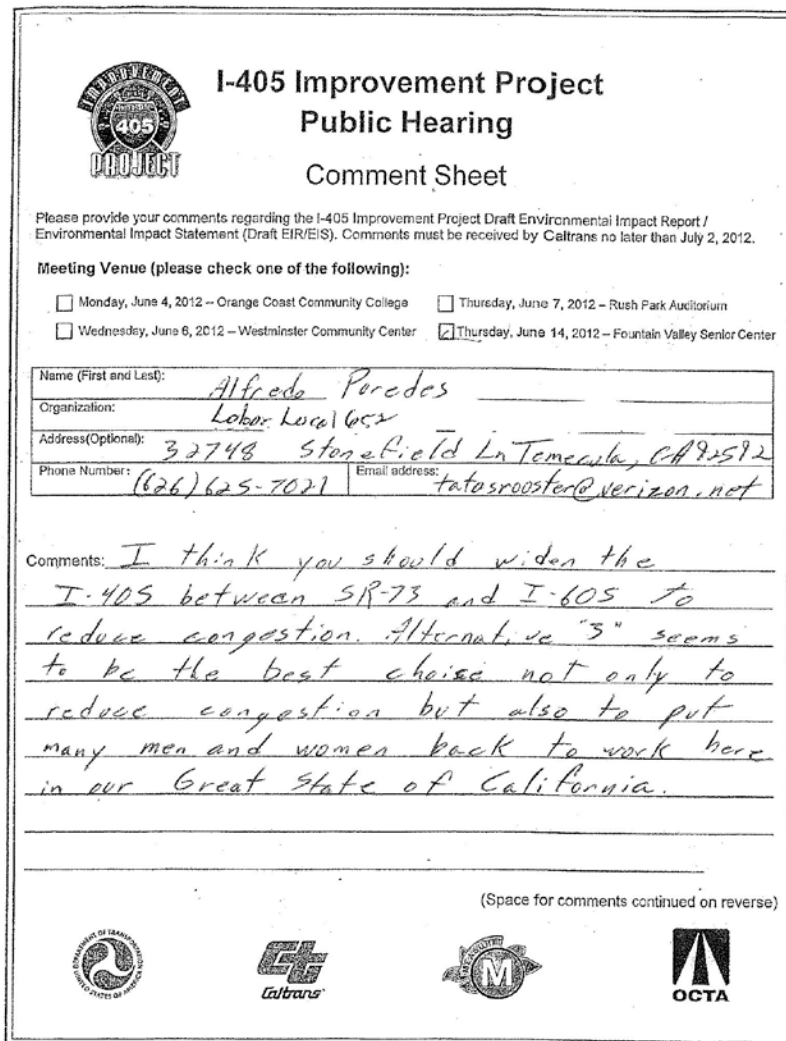 IMPROVEMENT
405
PROJECT
I-405 Improvement Project
Public Hearing
Comment Sheet
Please provide your comments regarding the I-405 Improvement Project Draft Environmental Impact Report /
Environmental Impact Statement (Draft EIR/EIS). Comments must be received by Caltrans no later than July 2, 2012.
Meeting Venue (please check one of the following):
Monday, June 4, 2012 – Orange Coast Community College
Thursday, June 7, 2012 – Rush Park Auditorium
Wednesday, June 6, 2012 – Westminster Community Center
Thursday, June 14, 2012 – Fountain Valley Senior Center
Name (First and Last): Alfredo Paredes
Organization: Labor Local 652
Address(Optional): 32748 Stonefield Ln Temecula, CA 92592
Phone Number: (626) 625-7021
Email address: tatosrooster@verizon.net
Comments: I think you should widen the
I-405 between SR-73 and I-605 to
reduce congestion. Alternative "3" seems
to be the best choise not only to
reduce congestion but also to put
many men and women back to work here
in our Great State of California.
(Space for comments continued on reverse)
DEPARTMENT OF TRANSPORTATION
UNITED STATES OF AMERICA
Caltrans
MEASURE
M
OCTA